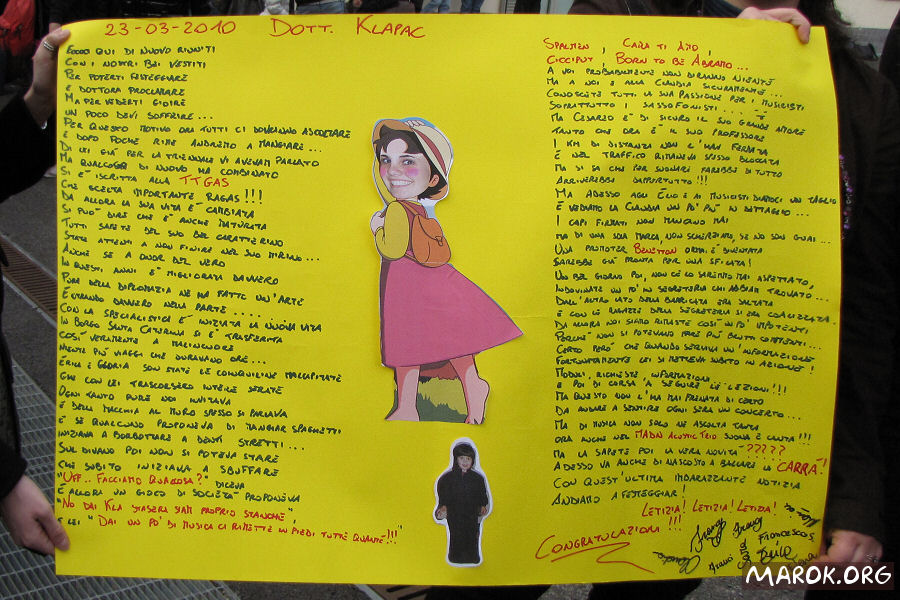 23-03-2010 DOTT. KLAPAC
ECCOCI QUI DI NUOVO RIUNITI
CON I NOSTRI BEI VESTITI
PER POTERTI FESTEGGIARE
E DOTTORA PROCLAMARE
MA PER VEDERTI GIOIRE
UN POCO DEVI SOFFRIRE...
PER QUESTO MOTIVO ORA TUTTI CI DOVRANNO ASCOLTARE
E DOPO POCHE RIME ANDREMO A MANGIARE...
DI LEI GIÀ PER LA TRIENNALE VI AVEVAM PARLATO
MA QUALCOSA DI NUOVO HA COMBINATO
SI È ISCRITTA ALLA TTGAS
CHE SCELTA IMPORTANTE RAGAS!!!
DA ALLORA LA SUA VITA È CAMBIATA
SI PUÒ DIRE CHE È ANCHE MATURATA
TUTTI SAPETE DEL SUO BEL CARATTERINO
STATE ATTENTI A NON FINIRE NEL SUO MIRINO...
ANCHE SE A ONOR DEL VERO
IN QUESTI ANNI È MIGLIORATA DAVVERO
PURA DELLA DIPLOMAZIA NE HA FATTO UN'ARTE
ENTRANDO DAVVERO NELLA PARTE....
CON LA SPECIALISTICA È INIZIATA LA NUOVA VITA
IN BORGO SANTA CATERINA SI È TRASFERITA
COSÌ VERAMENTE A MALINCUORE
NIENTE PIÙ VIAGGI CHE DURAVANO ORE...
ERICA E GLORIA SON STATE LE CONQUILINE MALCAPITATE
CHE CON LEI TRASCORSERO INTERE SERATE
OGNI TANTO PURE NOI INVITAVA
E DELLA MACCHIA AL MURO SPESSO SI PARLAVA
E SE QUALCUNO PROPONEVA DI MANGIAR SPAGHETTI
INIZIAVA A BORBOTTARE A DENTI STRETTI...
SUL DIVANO POI NON SI POTEVA STARE
CHE SUBITO INIZIAVA A SBUFFARE
"UFF.. FACCIAMO QUALCOSA?" DICEVA
E ALLORA UN GIOCO DI SOCIETÀ PROPONEVA
"NO DAI KLA STASERA SIAM PROPRIO STANCHE",
E LEI "DAI UN PO' DI MUSICA CI RIMETTE IN PIEDI TUTTE QUANTE!!!"
SPALMEN, CARA TI AMO,
CICCIPUT, BORN TO BE ABRAMO...
A VOI PROBABILMENTE NON DIRANNO NIENTE
MA A NOI E ALLA CLAUDIA SICURAMENTE...
CONOSCETE TUTTI LA SUA PASSIONE PER I MUSICISTI
SOPRATTUTTO I SASSOFONISTI....
MA CESAREO È DI SICURO IL SUO GRANDE AMORE
TANTO CHE ORA È IL SUO PROFESSORE
I KM DI DISTANZA NON L'HAN FERMATA
E NEL TRAFFICO RIMANEVA SPESSO BLOCCATA
MA SI SA CHE PER SUONARE FAREBBE DI TUTTO
ARRIVEREBBE DAPPERTUTTO!!!
MA ADESSO AGLI ELIO E AI MUSICISTI DIAMOCI UN TAGLIO
E VEDIAMO LA CLAUDIA UN PO' PIÙ IN DETTAGLIO...
I CAPI FIRMATI NON MANCANO MAI
MA DI UNA SOLA MARCA, NON SCHERZIAMO, SE NO SON GUAI...
UNA PROMOTER BENETTON ORMAI È DIVENTATA
SAREBBE GIÀ PRONTA PER UNA SFILATA!
UN BEL GIORNO POI, NON CE LO SAREMMO MAI ASPETTATO,
INDOVINATE UN PO' IN SEGRETERIA CHI ABBIAM TROVATO...
DALL'ALTRO LATO DELLA BARRICATA ERA SALTATA
E CON LE RAGAZZE DELLA SEGRETERIA SI ERA COALIZZATA.
DA ALLORA NOI SIAMO RIMASTE COSÌ UN PO' IMPOTENTI
PERCHÉ NON SI POTEVANO FARE PIÙ BRUTTI COMMENTI...
CERTO PERÒ CHE QUANDO SERVIVA UN'INFORMAZIONE
FORTUNATAMENTE LEI SI METTEVA SUBITO IN AZIONE!
MODULI, RICHIESTE, INFORMAZIONI
E POI DI CORSA A SEGUIRE LE LEZIONI!!!
MA QUESTO NON L'HA MAI FRENATA DI CERTO
DA ANDARE A SENTIRE OGNI SERA UN CONCERTO...
MA DI MUSICA NON SOLO NE ASCOLTA TANTA
ORA ANCHE NEL MADAI ACUSTIC TRIO SUONA E CANTA!!!
MA LA SAPETE POI LA VERA NOVITÀ?????
ADESSO VA ANCHE DI NASCOSTO A BALLARE LA CARRÀ!
CON QUEST'ULTIMA IMBARAZZANTE NOTIZIA
ANDIAMO A FESTEGGIAR!
LETIZIA! LETIZIA! LETIZIA!
CONGRATULAZIONI!!!
Francesco S.
MAROK.ORG